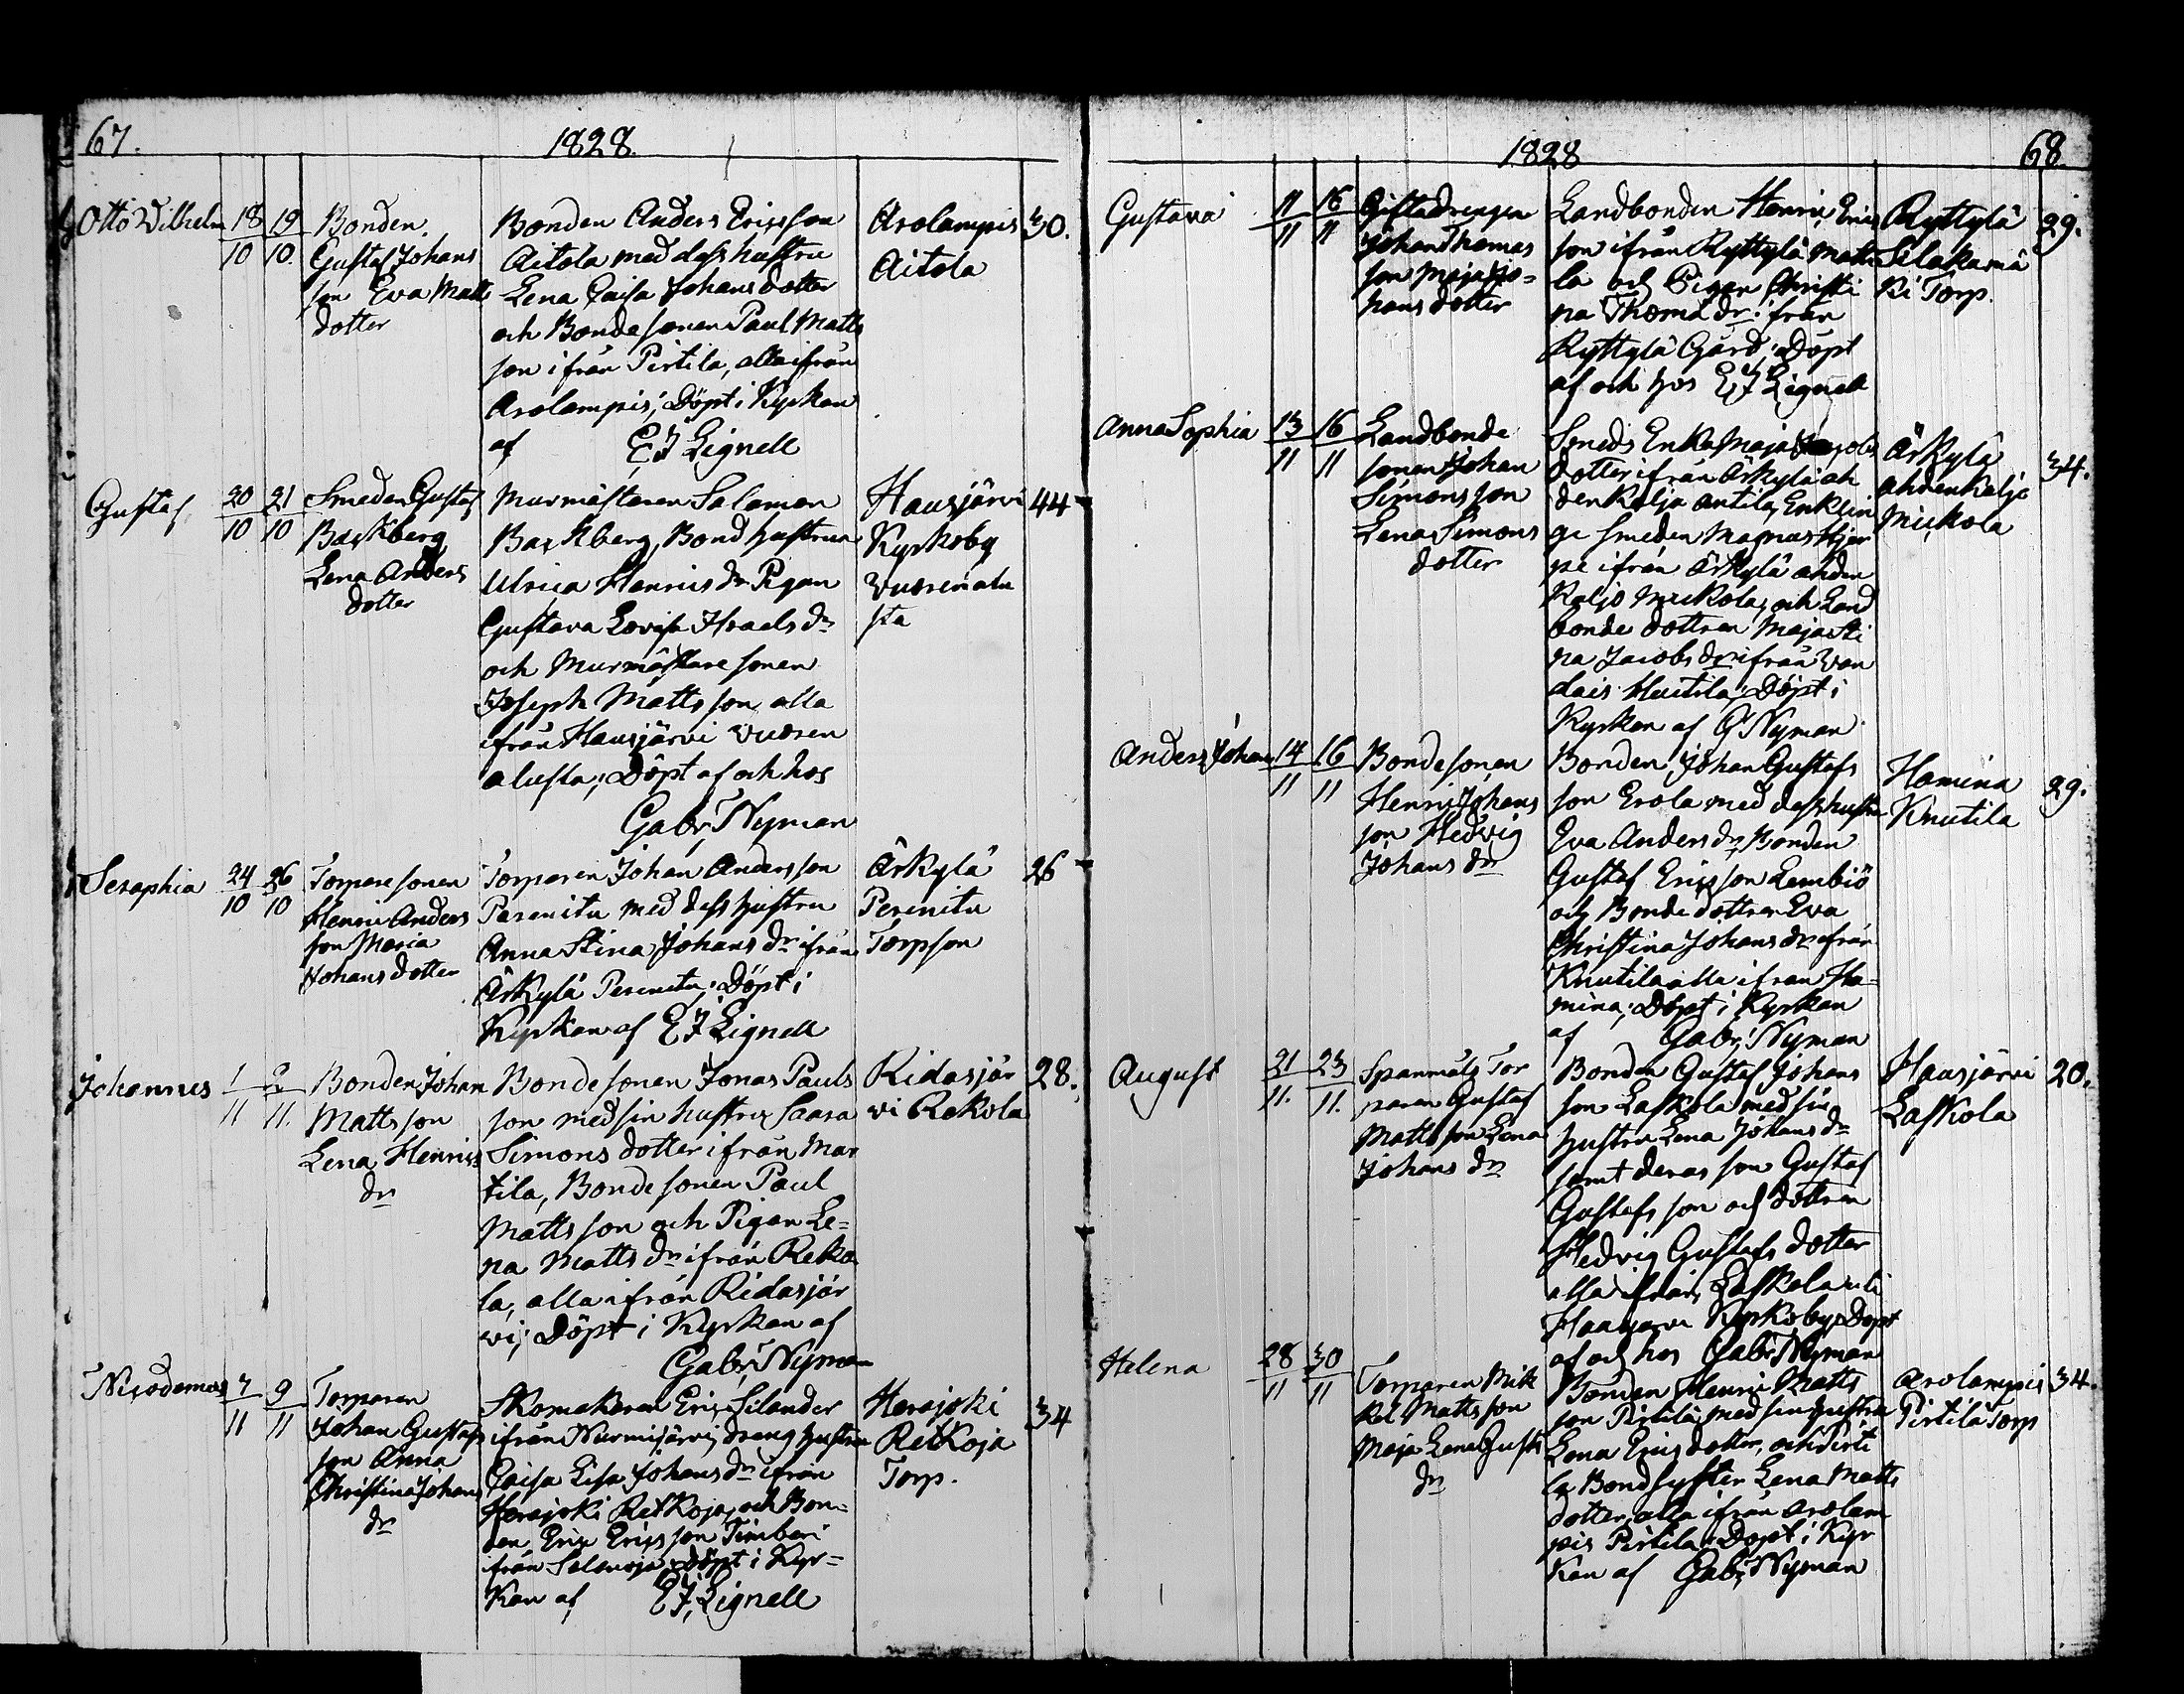 67. 1828.
Otto Wilhelm 18/10 19/10.
Bonden
Gustaf Johans
son Eva Matts
dotter
Bonden Anders Ericsson
Aitola med dess hustru
Lena Caisa Johans dotter
och Bondesonen Paul Matts
son ifrån Pirtila, alla ifrån
Arolampis; Döpt i Kyrkan
af EJ Lignell
Arolampis
Aitola
30.
Gustaf 20/10 21/10
Smeden Gustaf
Backberg
Lena Anders
dotter
Murmästaren Salomon
Backberg, Bond hustrun
Ulrica Henrics dr Pigan
Gustava Lovisa Israels dr
och Murmästare sonen
Joseph Mattsson alla
ifrån Hausjärvi Vuoren
alusta; Döpt af och hos
Gabr. Nyman
Hausjärvi
Kyrkoby
Vuorenalu
sta
44
Seraphia 24/10 26/10
Torpare sonen
Henric Anders
son Maria
Johans dotter
Torparen Johan Andersson
Perenitu med dess hustru
Anna Stina Johans dr ifrån
Ärkylä Perenitu; Döpt i
Kyrkan af EJ Lignell
Ärkylä
Perenitu
Torpson
26
Johannes 1/11 2/11.
Bonden Johan
Mattsson
Lena Henrics
dr
Bondesonen Jonas Pauls
son med sin hustru Saara
Simons dotter ifrån Mar
tila, Bondesonen Paul
Mattsson och Pigan Le=
na Matts dr ifrån Reko
la, alla ifrån Ridasjär
vi; Döpt i Kyrkan af
Gabr. Nyman
Ridasjär
vi Rekola
28.
Nicodemus 7/11 9/11
Torparen
Johan Gustafs
son Anna
Christina Johans
dr
Skomakaren Eric Silander
ifrån Nurmijärvi, dreng hustrun
Caisa Lisa Johans dr ifrån
Herajoki Retkoja, och Bon=
den Eric Ericsson Timberi
ifrån Selänoja; Döpt i Kyr=
kan af EJ Lignell
Herajoki
Retkoja
Torp.
34
1828 68
Gustava 11/11 16/11
Giftadrengen
Johan Thomas
son Maja Jo=
hans dotter
Landbonden Henric Erics
son ifrån Ryttylä Matti
la och Pigan Christi
na Thoma dr ifrån
Ryttylä Gård; Döpt
af och hos EJ Lignell
Ryttylä
Selakamä
ki Torp.
29.
Anna Sophia 13/11 16/11
Landbonde
sonen Johan
Simonsson
Lena Simons
dotter
Smeds Enkan Maja Jacobs
dotter ifrån Ärkylä ah
denkaljo Antila, Enklin
ge Smeden Magnus Hjer
pe ifrån Ärkylä ahden
Kaljo Mickola, och Land
bonde dottren Maja Sti
na Jacobs dr ifrån Van
dais Huitila; Döpt i
Kyrkan af G Nyman
Ärkylä
ahdenkaljo
Mickola
34.
Anders Johan 14/11 16/11
Bondesonen
Henric Johans
son Hedvig
Johans dr
Bonden Johan Gustafs
son Erola med dess hustru
Eva Anders dr, Bonden
Gustaf Ericsson Lembiö
och Bondedottren Eva
Christina Johans dr ifrån
Knutila alla ifrån Ha=
mina; Döpt i Kyrkan
af Gabr. Nyman
Hamina
Knutila
29.
August 21/11. 23/11.
Spanmåls Tor
paren Gustaf
Mattsson Lena
Johans dr
Bonden Gustaf Johans
son Laskola med sin
hustru Lena Johans dr
samt deras son Gustaf
Gustafs son och dottren
Hedvig Gustafs dotter
alla ifrån Laskola uti
Hausjärvi Kyrkoby; Döpt
af och hos Gabr. Nyman
Hausjärvi
Laskola
20.
Helena 28/11 30/11
Torparen Mik
kel Mattsson
Maja Lena Gustafs
dr
Bonden Henric Matts
son Pirtilä med sin hustru
Lena Erics dotter, och Pirti
la Bondsyster Lena Matts
dotter, alla ifrån Arolam
pis Pirtila; Döpt i Kyr
kan af Gabr. Nyman
Arolampis
Pirtilä Torp
34.